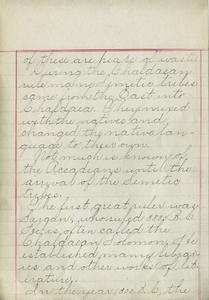 of these are heaps of waste
During the Chaldaean
rule many Semetic tribes
came from the East into
Chaldaea. They mixed
with the natives and
changed the native lan-
guage to their own.
Not much is known of
the Accadians until the
arrival of the Semetic
tribes.
The first great ruler was
Sargon, who ruled 3800 B.C.
He is often called the
Chaldaean Solomon, he
established many libra-
ries and other works of lit-
erature.
In the year B.C., the